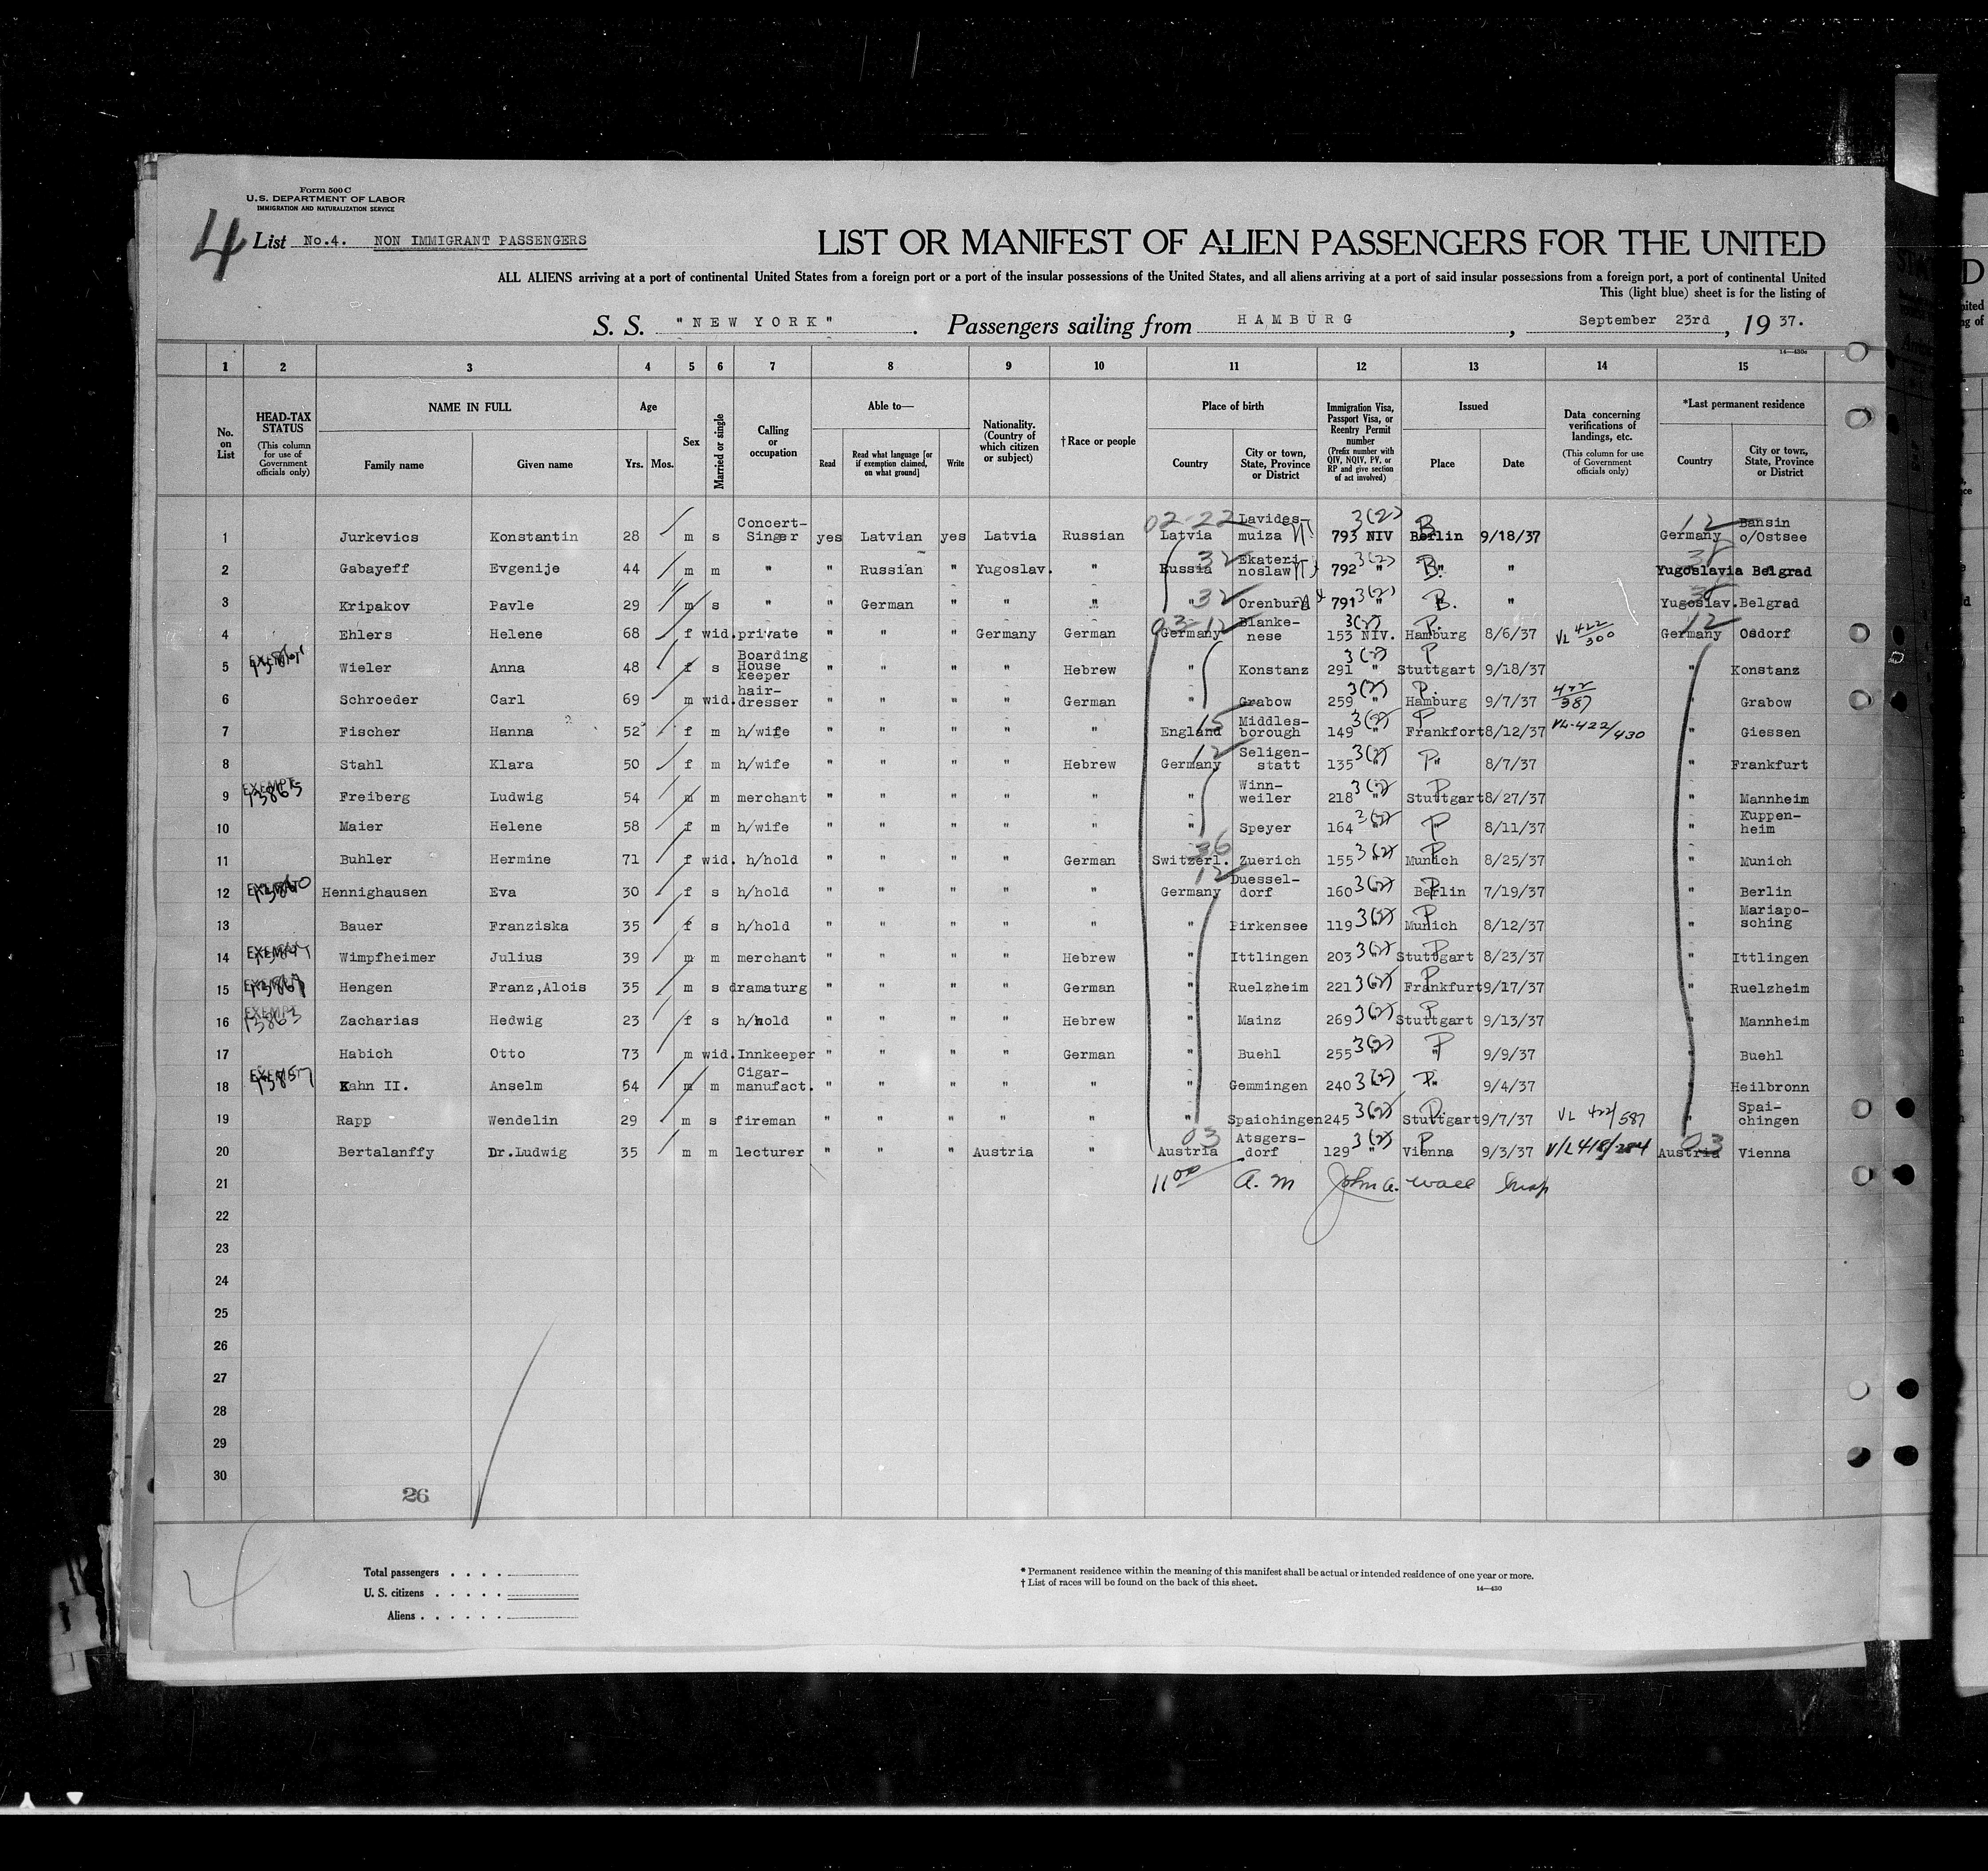 Form 500 C
U.S. DEPARTMENT OF LABOR
IMMIGRATION AND NATURALIZATION SERVICE
4 List No.4. NON IMMIGRANT PASSENGERS
LIST OR MANIFEST OF ALIEN PASSENGERS FOR THE UNITED
ALL ALIENS arriving at a port of continental United States from a foreign port or a port of the insular possessions of the United States, and all aliens arriving at a port of said insular possessions from a foreign port, a port of continental United
This (light blue) sheet is for the listing of
S. S. "NEW YORK". Passengers sailing from HAMBURG, September 23rd, 19 37.
14—430c
1 2 3 4 5 6 7 8 9 10 11 12 13 14 15
No. on List
HEAD-TAX STATUS (This column for use of Government officials only)
NAME IN FULL Family name Given name
Age Yrs. Mos.
Sex
Married or single
Calling or occupation
Able to— Read Read what language [or if exemption claimed, on what ground] Write
Nationality. (Country of which citizen or subject)
†Race or people
Place of birth Country City or town, State, Province or District
Immigration Visa, Passport Visa, or Reentry Permit number (Prefix number with QIV, NQIV, PV, or RP and give section of act involved)
Issued Place Date
Data concerning verifications of landings, etc. (This column for use of Government officials only)
*Last permanent residence Country City or town, State, Province or District
1 Jurkevics Konstantin 28 m s Concert-Singer yes Latvian yes Latvia Russian 02-22 Latvia Lavides-muiza 3(2) 793 NIV B. Berlin 9/18/37 12 Germany Bansin o/Ostsee
2 Gabayeff Evgenije 44 m m " " Russian " Yugoslav. " 32 Russia Ekateri-noslaw 792 3(2) " B. " " Yugoslavia Belgrad
3 Kripakov Pavle 29 m s " " German " " " 32 " Orenburg 791 3(2) " B. " " Yugoslav. Belgrad
4 Ehlers Helene 68 f wid. private " " " Germany German 03-12 Germany Blanke-nese 3(2) 153 NIV. P. Hamburg 8/6/37 VL 422/300 12 Germany Osdorf
5 EXEMPT Wieler Anna 48 f s Boarding House keeper " " " " Hebrew " Konstanz 3(2) 291 " P Stuttgart 9/18/37 " Konstanz
6 Schroeder Carl 69 m wid. hair-dresser " " " " German " Grabow 3(2) 259 " P. Hamburg 9/7/37 422/387 " Grabow
7 Fischer Hanna 52 f m h/wife " " " " " 15 England Middles-borough 3(2) 149 " P Frankfort 8/12/37 VL-422/430 " Giessen
8 Stahl Klara 50 f m h/wife " " " " Hebrew 12 Germany Seligen-statt 135 3(2) " P " 8/7/37 " Frankfurt
9 EXEMPT 13865 Freiberg Ludwig 54 m m merchant " " " " " " Winn-weiler 218 3(2) " P Stuttgart 8/27/37 " Mannheim
10 Maier Helene 58 f m h/wife " " " " " " Speyer 164 3(2) " P " 8/11/37 " Kuppen-heim
11 Buhler Hermine 71 f wid. h/hold " " " " German 36 Switzerl. Zuerich 155 3(2) " P Munich 8/25/37 " Munich
12 EXEMPT Hennighausen Eva 30 f s h/hold " " " " " 12 Germany Duessel-dorf 160 3(2) " P Berlin 7/19/37 " Berlin
13 Bauer Franziska 35 f s h/hold " " " " " " Pirkensee 119 3(2) " P Munich 8/12/37 " Mariapo-sching
14 EXEMPT Wimpfheimer Julius 39 m m merchant " " " " Hebrew " Ittlingen 203 3(2) " P Stuttgart 8/23/37 " Ittlingen
15 EXEMPT Hengen Franz,Alois 35 m s dramaturg " " " " German " Ruelzheim 221 3(2) " P Frankfurt 9/17/37 " Ruelzheim
16 EXEMPT 13863 Zacharias Hedwig 23 f s h/hold " " " " Hebrew " Mainz 269 3(2) " P Stuttgart 9/13/37 " Mannheim
17 Habich Otto 73 m wid. Innkeeper " " " " German " Buehl 255 3(2) " P " 9/9/37 " Buehl
18 EXEMPT Kahn II. Anselm 54 m m Cigar-manufact. " " " " " " Gemmingen 240 3(2) " P. " 9/4/37 " Heilbronn
19 Rapp Wendelin 29 m s fireman " " " " " " Spaichingen 245 3(2) " P. Stuttgart 9/7/37 VL 422/587 " Spai-chingen
20 Bertalanffy Dr.Ludwig 35 m m lecturer " " " Austria " 03 Austria Atsgers-dorf 129 3(2) " P Vienna 9/3/37 V/L 418/284 03 Austria Vienna
21 11 00 A. M John A. Wall Insp
22
23
24
25
26
27
28
29
30
26
Total passengers . . . .
U. S. citizens . . . . .
Aliens . . . . . .
* Permanent residence within the meaning of this manifest shall be actual or intended residence of one year or more.
† List of races will be found on the back of this sheet.
14—430